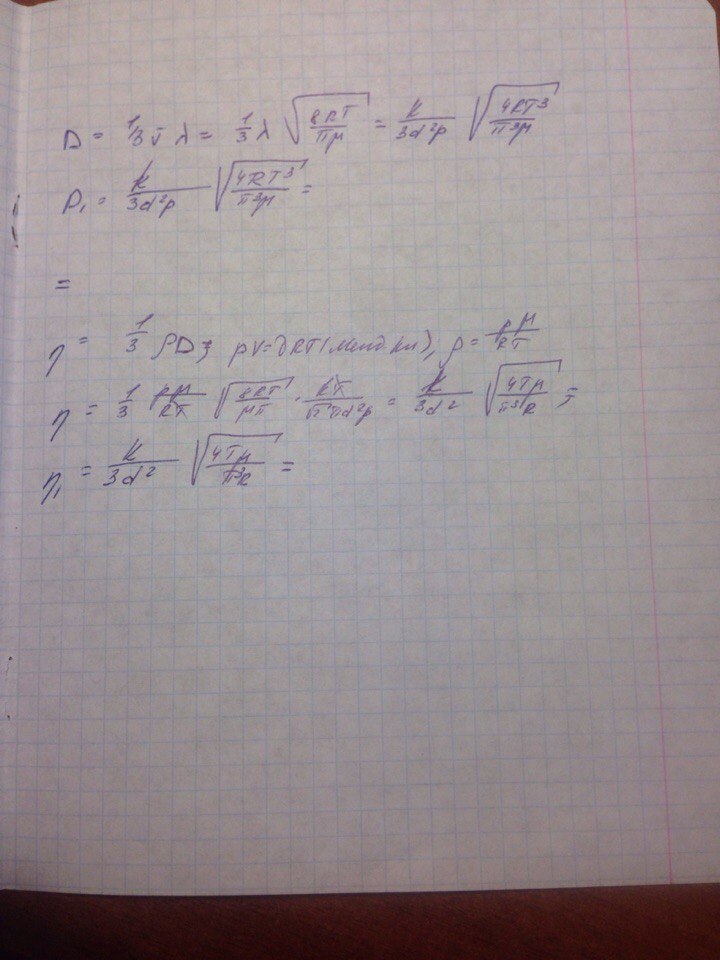 D = 1/3 v̄ λ = 1/3 λ √(8RT/πμ) = k/(3d²p) √(4RT³/π³μ)
D₁ = k/(3d²p) √(4RT³/π³μ) =
=
η = 1/3 ρD; pV=νRT (менд. кл), ρ = pμ/RT
η = 1/3 pμ/RT √(8RT/μπ) · kT/(√2πd²p) = k/(3d²) √(4Tμ/π³R) ;
η₁ = k/(3d²) √(4Tμ/π³R) =